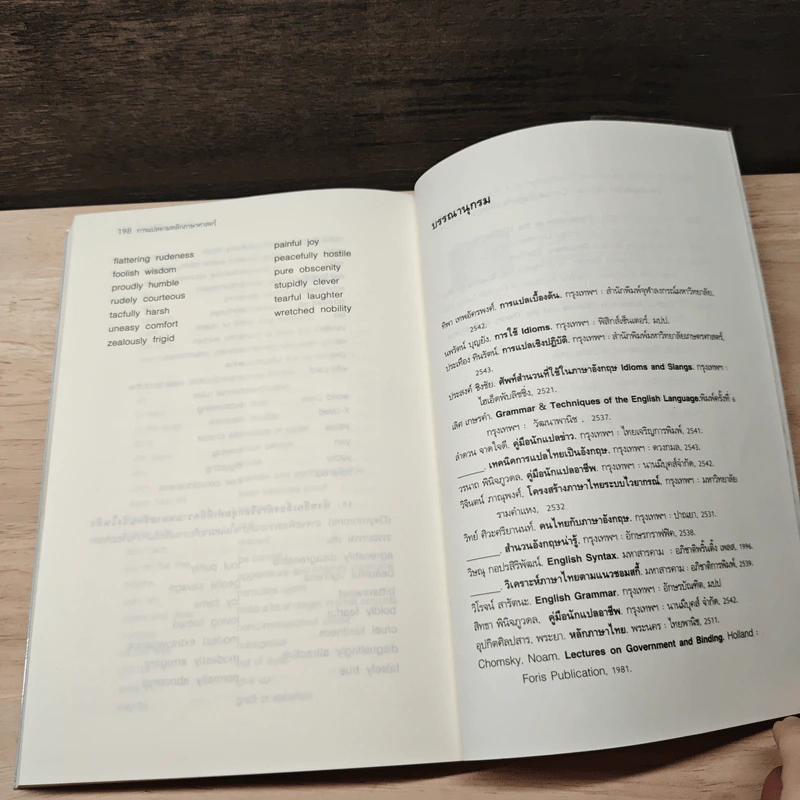 198 การแปลตามหลักภาษาศาสตร์
flattering rudeness
foolish wisdom
proudly humble
rudely courteous
tacfully harsh
uneasy comfort
zealously frigid
painful joy
peacefully hostile
pure obscenity
stupidly clever
tearful laughter
wretched nobility
บรรณานุกรม
ทิพา เทพอัครพงศ์. การแปลเบื้องต้น. กรุงเทพฯ : สำนักพิมพ์จุฬาลงกรณ์มหาวิทยาลัย,
2542.
นพรัตน์ บุญยัง. การใช้ Idioms. กรุงเทพฯ : ฟิสิกส์เซ็นเตอร์, มปป.
ประเทือง ทินรัตน์. การแปลเชิงปฏิบัติ. กรุงเทพฯ : สำนักพิมพ์มหาวิทยาลัยเกษตรศาสตร์,
2543.
ประสงค์ ชิงชัย. ศัพท์สำนวนที่ใช้ในภาษาอังกฤษ Idioms and Slangs. กรุงเทพฯ :
ไฮเอ็ดพับลิชชิ่ง, 2521.
เลิศ เกษรคำ. Grammar & Techniques of the English Language.พิมพ์ครั้งที่ 6
กรุงเทพฯ : วัฒนาพานิช , 2537.
ลำดวน จาดใจดี. คู่มือนักแปลข่าว. กรุงเทพฯ : ไทยเจริญการพิมพ์, 2541.
______. เทคนิคการแปลไทยเป็นอังกฤษ. กรุงเทพฯ : ดวงกมล, 2543.
วรนาถ พินิจภูวดล. คู่มือนักแปลอาชีพ. กรุงเทพฯ : นานมีบุคส์จำกัด, 2542.
วิจินตน์ ภาณุพงศ์. โครงสร้างภาษาไทยระบบไวยากรณ์. กรุงเทพฯ : มหาวิทยาลัย
รามคำแหง, 2532
วิทย์ ศิวะศริยานนท์. คนไทยกับภาษาอังกฤษ. กรุงเทพฯ : ปาณยา, 2531.
______. สำนวนอังกฤษน่ารู้. กรุงเทพฯ : อักษรกราฟฟิค, 2538.
วิษณุ กอปรสิริพัฒน์. English Syntax. มหาสารคาม : อภิชาติพริ้นติ้ง เพลส, 1996.
______. วิเคราะห์ภาษาไทยตามแนวชอมสกี้. มหาสารคาม : อภิชาติการพิมพ์, 2539.
วิโรจน์ สารัตนะ. English Grammar. กรุงเทพฯ : อักษรบัณฑิต, มปป
สิทธา พินิจภูวดล. คู่มือนักแปลอาชีพ. กรุงเทพฯ : นานมีบุคส์ จำกัด, 2542.
อุปกิตศิลปสาร, พระยา. หลักภาษาไทย. พระนคร : ไทยพานิช, 2511.
Chomsky, Noam. Lectures on Government and Binding. Holland :
Foris Publication, 1981.